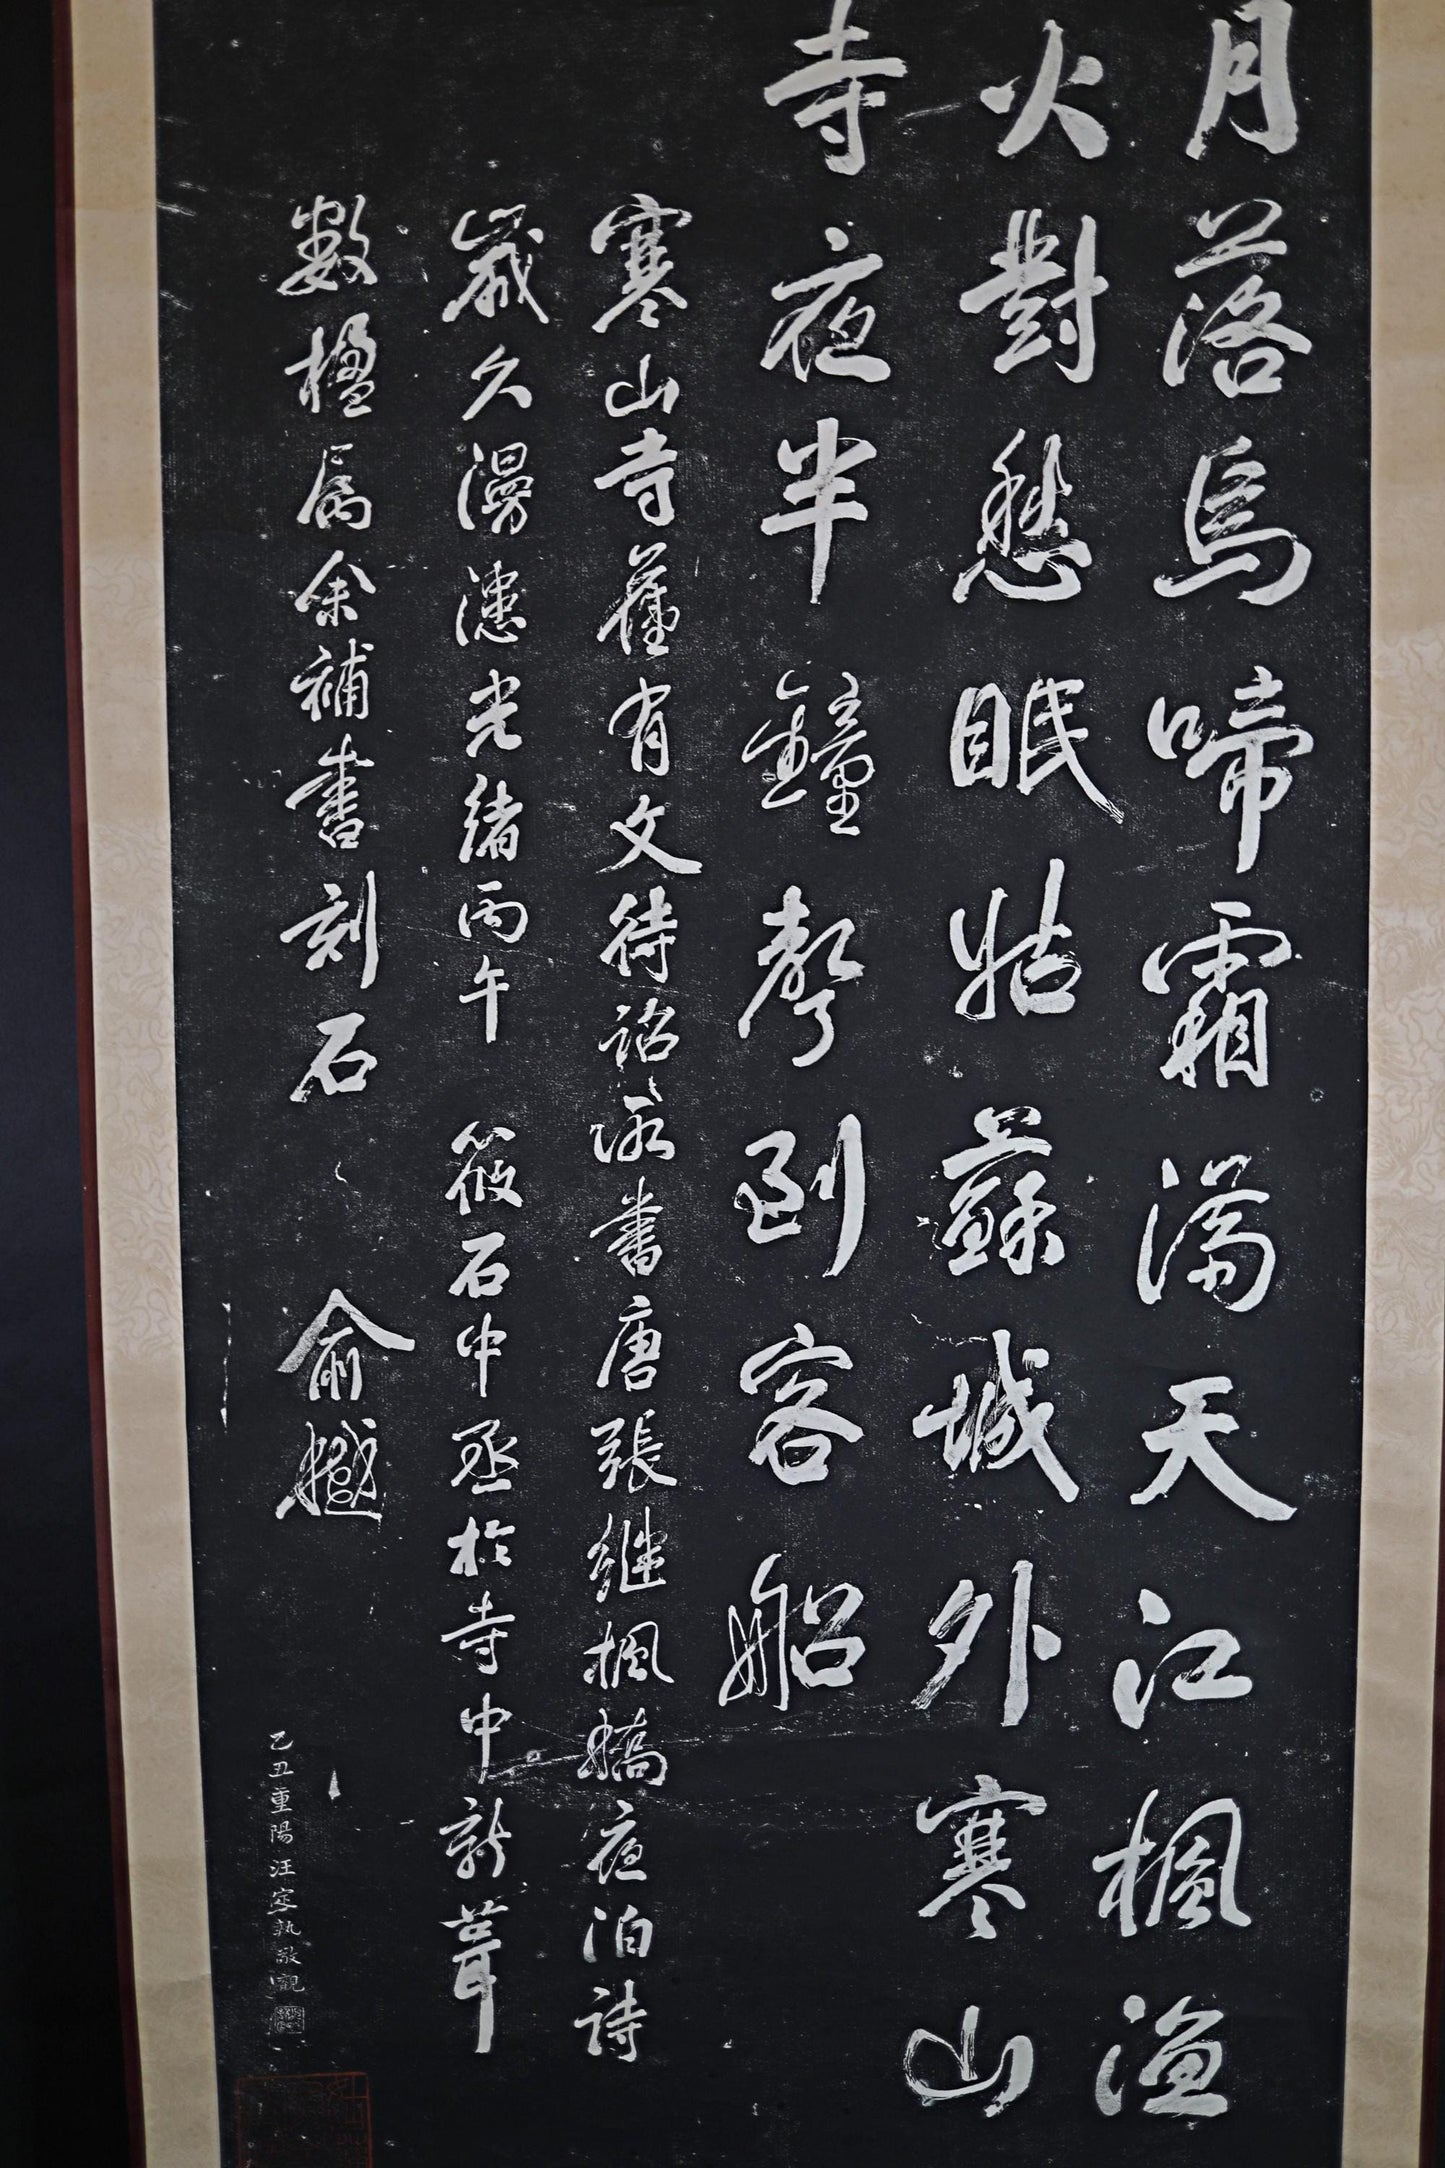 月落烏啼霜滿天江楓漁
火對愁眠姑蘇城外寒山
寺夜半鐘聲到客船
寒山寺舊有文待詔所書唐張繼楓橋夜泊詩
歲久漫漶光緒丙午 筱石中丞於寺中新葺
數楹屬余補書刻石 俞樾
乙丑重陽汪定執敬觀